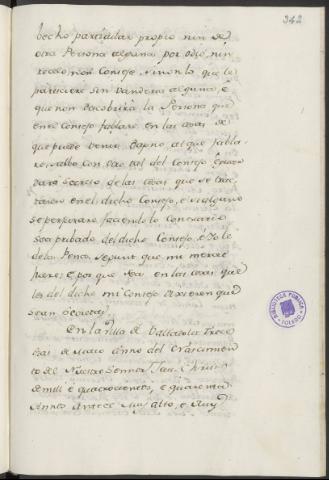 342
fecho particular propio nin de
otra Persona alguna por odio, nin
rencor nin Consejo, sinon lo que le
pareciere sin vanderia alguna, e
que non descobrirá la Persona que
en el Consejo fablare en las cosas de
que puede venir dapno, al que fabla-
re, salbo con los del Consejo, e guar-
dará secreto de las cosas que se trac-
taren en el dicho Consejo, e si alguno
se perjurare faciendo lo Contrario
sea pribado del dicho Consejo, e Yo le
de la Pena, segunt que mi merced
fuere, e por que sea en las cosas que
los del dicho mi Consejo dixeren que
sean secretas
En la Villa de Valladolid Trece
dias de Marzo Anno del Nascimien
to de Nuestro Sennor Jesu Christo
de mill e quatrocientos, e quarenta
Annos Ante el Muy alto, e Muy
BIBLIOTECA PUBLICA
TOLEDO